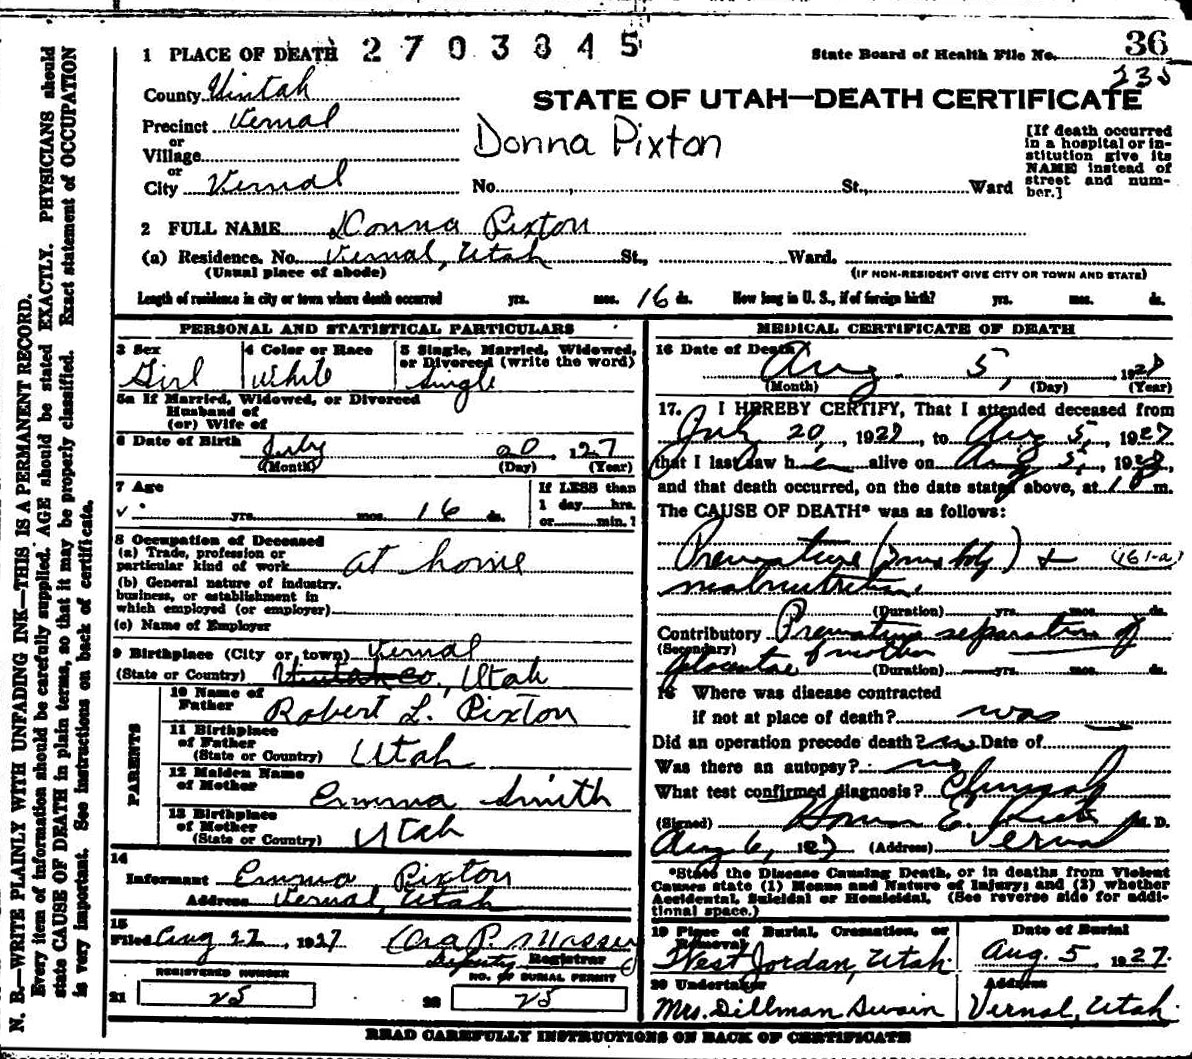 1 PLACE OF DEATH 2703845
State Board of Health File No. 36
235
County Uintah
STATE OF UTAH—DEATH CERTIFICATE
Precinct Vernal
or
Village
or
City Vernal
Donna Pixton
No. , St., Ward
[If death occurred
in a hospital or in-
stitution give its
NAME instead of
street and num-
ber.]
2 FULL NAME Donna Pixton
(a) Residence. No. Vernal, Utah St., Ward.
(Usual place of abode)
(IF NON-RESIDENT GIVE CITY OR TOWN AND STATE)
Length of residence in city or town where death occurred yrs. mos. 16 ds. How long in U. S., if of foreign birth? yrs. mos. ds.
PERSONAL AND STATISTICAL PARTICULARS
3 Sex
Girl
4 Color or Race
White
5 Single, Married, Widowed,
or Divorced (write the word)
Single
5a If Married, Widowed, or Divorced
Husband of
(or) Wife of
6 Date of Birth July 20, 1927
(Month) (Day) (Year)
7 Age
yrs. mos. 16 ds.
If LESS than
1 day hrs.
or min.?
8 Occupation of Deceased
(a) Trade, profession or
particular kind of work at home
(b) General nature of industry,
business, or establishment in
which employed (or employer)
(c) Name of Employer
9 Birthplace (City or town) Vernal
(State or Country) Uintah Co, Utah
PARENTS
10 Name of
Father Robert L. Pixton
11 Birthplace
of Father
(State or Country) Utah
12 Maiden Name
of Mother Emma Smith
13 Birthplace
of Mother
(State or Country) Utah
14
Informant Emma Pixton
Address Vernal, Utah
15
Filed Aug 27, 1927 Cora P.
Deputy Registrar
REGISTERED NUMBER
21 25
NO. OF BURIAL PERMIT
22 25
MEDICAL CERTIFICATE OF DEATH
16 Date of Death Aug. 5, 1927
(Month) (Day) (Year)
17. I HEREBY CERTIFY, That I attended deceased from
July 20, 1927, to Aug 5, 1927
that I last saw her alive on Aug 5, 1927,
and that death occurred, on the date stated above, at m.
The CAUSE OF DEATH* was as follows:
Premature + (161-a)
malnutrition.
(Duration) yrs. mos. ds.
Contributory Premature separation of
(Secondary)
placentae of mother
(Duration) yrs. mos. ds.
18 Where was disease contracted
if not at place of death? was
Did an operation precede death? no Date of
Was there an autopsy? no
What test confirmed diagnosis?
(Signed) E. M. D.
Aug 6, 1927 (Address) Vernal
*State the Disease Causing Death, or in deaths from Violent
Causes state (1) Means and Nature of Injury; and (2) whether
Accidental, Suicidal or Homicidal. (See reverse side for addi-
tional space.)
19 Place of Burial, Cremation, or
Removal
West Jordan, Utah
Date of Burial
Aug. 5, 1927.
20 Undertaker
Mrs. Dillman Swain
Address
Vernal, Utah.
READ CAREFULLY INSTRUCTIONS ON BACK OF CERTIFICATE
N. B.—WRITE PLAINLY WITH UNFADING INK—THIS IS A PERMANENT RECORD.
Every item of information should be carefully supplied. AGE should be stated EXACTLY. PHYSICIANS should
state CAUSE OF DEATH in plain terms, so that it may be properly classified. Exact statement of OCCUPATION
is very important. See instructions on back of certificate.